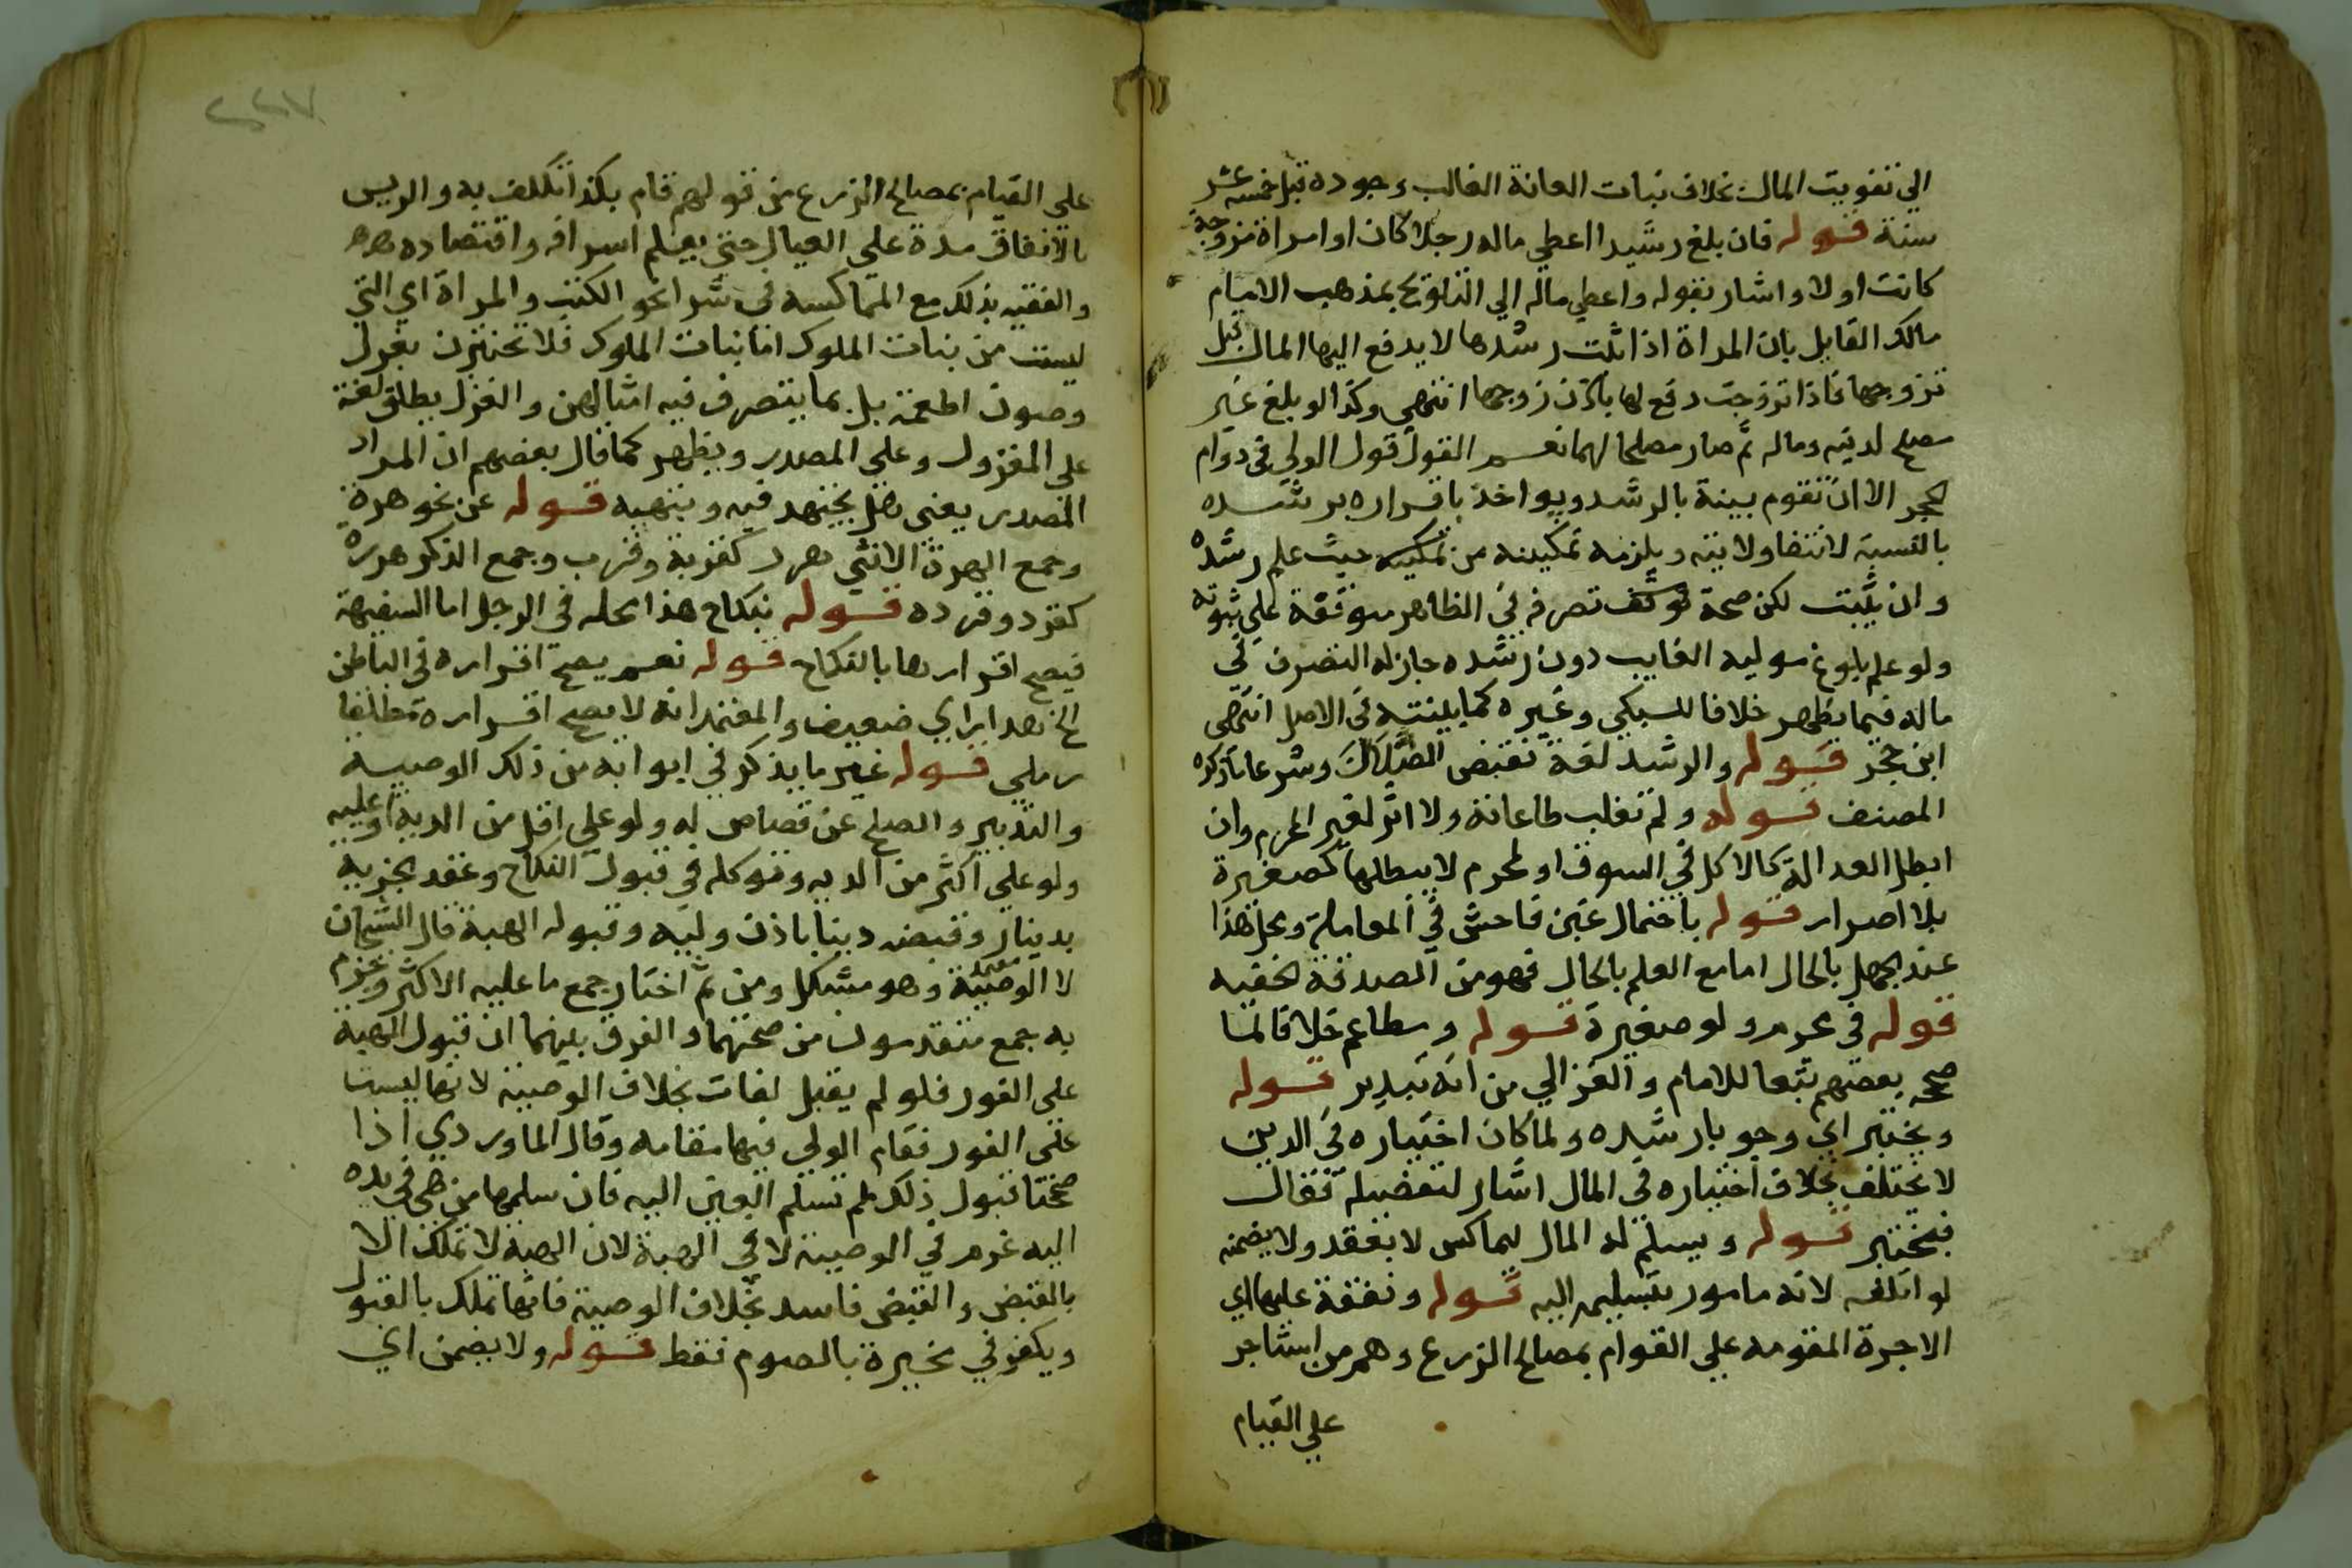 الي تفويت المال بخلاف نبات العانة الغالب وجوده قبل خمسة عشر
سنة قوله فان بلغ رشيدا اعطي ماله رجلا كان او امراة مزوجة
كانت او لا واشار بقوله واعطي ماله الي التلويح بمذهب الامام
مالك القايل بان المراة اذا ثلت رشدها لا يدفع اليها المال قبل
تزوجها فاذا تزوجت دفع لها باذن زوجها انتهي وكذا لو بلغ غير
مصلح لدينه وماله ثم صار مصلحا لهما نعم القول قول الولي في دوام
الحجر الا ان تقوم بينة بالرشد ويواخذ باقراره برشده
بالنسبة لانتفا ولايته ويلزمه تمكينه من تمكينه حيث علم رشده
وان يثبت لكن صحة تصرفه في الظاهر موقفة علي ثبوته
ولو علم بلوغ موليه الغايب دون رشده جاز له التصرف في
ماله فيما يظهر خلافا للسبكي وغيره كما بينته في الاصل انتهي
ابن حجر قوله والرشد لغة نقيض الضلال وشرعا ما ذكره
المصنف قوله ولم تغلب طاعاته ولا اثر لغير المحرم وان
ابطل العدالة كالاكل في السوق او لمحرم لا يبطلها كصغيرة
بلا اصرار قوله باحتمال غبن فاحش في المعاملة ومحل هذا
عند الجهل بالحال اما مع العلم بالحال فهو من الصدقة الخفيه
قوله في محرم ولو صغيرة قوله ومطاعم خلافا لما
صححه بعضهم تبعا للامام والغزالي من انه تبذير قوله
ويختبر اي وجوبا رشده ولما كان اختباره في الدين
لا يختلف بخلاف اختباره في المال اشار لتفضيله فقال
فيختبر قوله ويسلم له المال ليماكس لا بعقد ولا يضمنه
لو اتلفه لانه مامور بتسليمه اليه قوله ونفقة عليها اي
الاجرة المقومه علي القوام بمصالح الزرع وهم من استاجر
علي القيام
٢٢٧
علي القيام بمصالح الزرع من قولهم قام بكذا تكلف به والريس
بالانفاق مدة علي العيال حتي يعلم اسرافه واقتصاده
والفقيه بذلك مع المماكسة في شرا نحو الكتب والمراة اي التي
ليست من بنات الملوك اما بنات الملوك فلا تختبرن بغزل
وصون اطعمة بل بما يتصرف فيه امثالهن والغزل يطلق لغة
علي المغزول وعلي المصدر ويظهر كما قال بعضهم ان المراد
المصدر يعني هل يجتهد فيه وينهيه قوله عن نحو هرة
وجمع الهرة الانثي هرر كقربة وقرب وجمع الذكر هررة
كقرد وقردة قوله بنكاح هذا محله في الرجل اما السفيهة
فيصح اقرارها بالنكاح قوله نعم يصح اقراره في الباطن
الخ هذا راي ضعيف والمعتمد انه لا يصح اقراره مطلقا
رملي قوله غير ما يذكر في ابوابه من ذلك الوصيه
والتدبير والصلح عن قصاص له ولو علي اقل من الدية او عليه
ولو علي اكثر من الديه وتوكله في قبول النكاح وعقد الجزيه
بدينار وقبضه دينا باذن وليه وقبوله الهبة قال الشيخان
لا الوصية وهو مشكل ومن ثم اختار جمع ما عليه الاكثر وجزم
به جمع متقدمون من صحتهما والفرق بينهما ان قبول الهبة
علي الفور فلو لم يقبل لفات بخلاف الوصية لانها ليست
علي الفور فقام الولي فيها مقامه وقال الماوردي اذا
صححنا قبول ذلك لم تسلم العين اليه فان سلمها من هي في يده
اليه غرم في الوصية لا في الهبة لان الهبة لا تملك الا
بالقبض والقبض فاسد بخلاف الوصية فانها تملك بالقبول
ويكفر في مخيرة بالصوم فقط قوله ولا يضمن اي